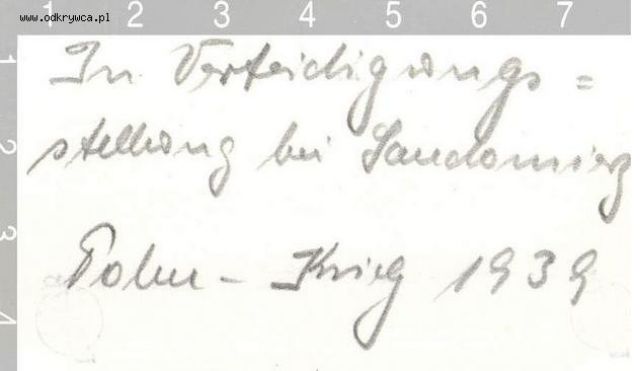 www.odkrywca.pl
1 2 3 4 5 6 7
1
2
3
4
In Verteidigungs=
stellung bei Sandomierz
Polen - Krieg 1939